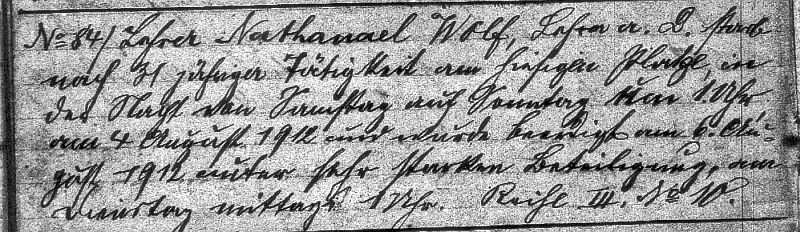 No 84/ Lehrer Nathanael Wolf, Lehrer a. D. starb
nach 31 jähriger Tätigkeit am hiesigen Platze, in
der Nacht von Samstag auf Sonntag um 1 Uhr
am 4 August 1912 und wurde beerdigt am 6. Au-
gust 1912 unter sehr starken Beteiligung, am
Dienstag mittags 1 Uhr. Reihe III. No 10.